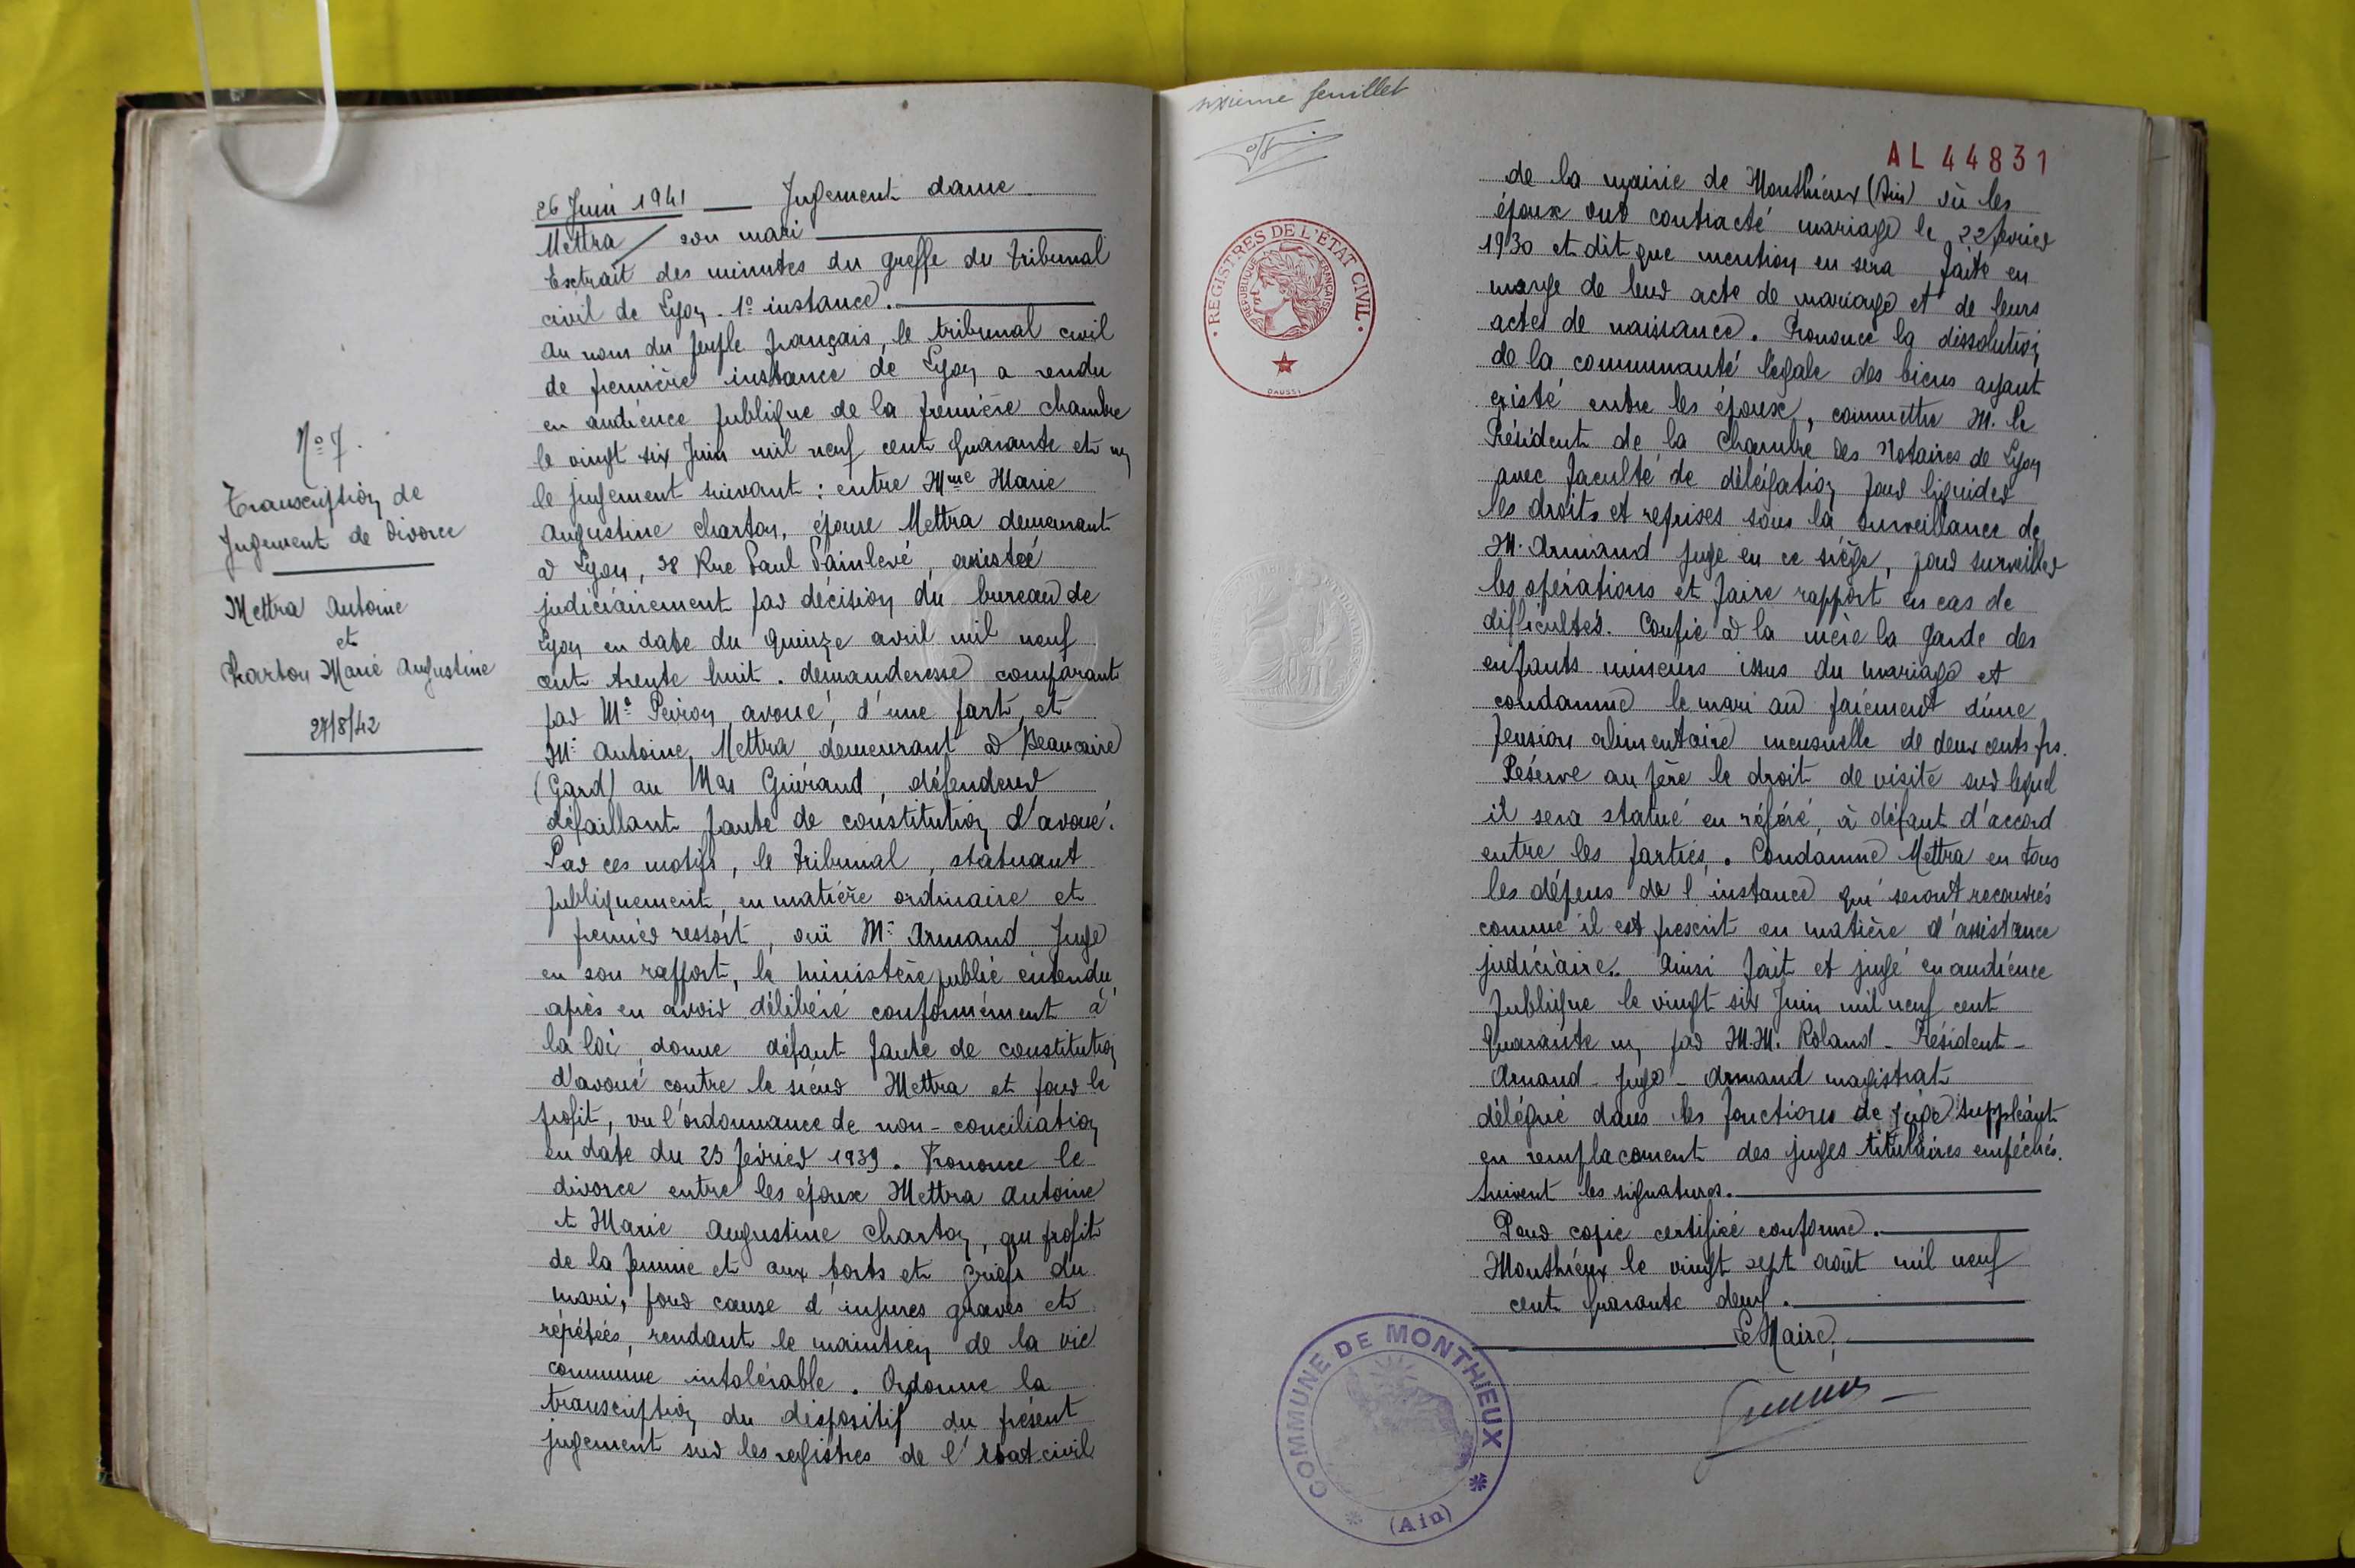 N° 7.
Transcription de
Jugement de divorce
Mettra Antoine
et
Charton Marie Augustine
27/8/42
26 Juin 1941 — Jugement dame
Mettra / son mari
Extrait des minutes du greffe du tribunal
civil de Lyon. 1° instance.
Au nom du peuple français, le tribunal civil
de première instance de Lyon a rendu
en audience publique de la première chambre
le vingt six Juin mil neuf cent quarante et un
le jugement suivant : entre Mme Marie
Augustine Charton, épouse Mettra demeurant
à Lyon, 38 Rue Paul Painlevé, assistée
judiciairement par décision du bureau de
Lyon en date du quinze avril mil neuf
cent trente huit. demanderesse comparant
par Me Peiron, avoué, d'une part, et
Mr Antoine Mettra demeurant à Beaucaire
(Gard) au Mas Guérand, défendeur
défaillant faute de constitution d'avoué.
Par ces motifs, le tribunal, statuant
publiquement, en matière ordinaire et
premier ressort, ouï Mr Armand Juge
en son rapport, le ministère public entendu,
après en avoir délibéré conformément à
la loi, donne défaut faute de constitution
d'avoué contre le sieur Mettra et pour le
profit, vu l'ordonnance de non-conciliation
en date du 23 février 1939. Prononce le
divorce entre les époux Mettra Antoine
et Marie Augustine Charton, au profit
de la femme et aux torts et griefs du
mari, pour cause d'injures graves et
répétées, rendant le maintien de la vie
commune intolérable. Ordonne la
transcription du dispositif du présent
jugement sur les registres de l'état civil
sixième feuillet
AL 44831
REGISTRES DE L'ÉTAT CIVIL
RÉPUBLIQUE FRANÇAISE
DAUSSI
de la mairie de Monthieux (Ain) où les
époux ont contracté mariage le 22 février
1930 et dit que mention en sera faite en
marge de leur acte de mariage et de leurs
actes de naissance. Prononce la dissolution
de la communauté légale des biens ayant
existé entre les époux, commettre M. le
Président de la Chambre des Notaires de Lyon
avec faculté de délégation pour liquider
les droits et reprises sous la surveillance de
M. Armand juge en ce siège, pour surveiller
les opérations et faire rapport en cas de
difficultés. Confie à la mère la garde des
enfants mineurs issus du mariage et
condamne le mari au paiement d'une
pension alimentaire mensuelle de deux cents frs.
Réserve au père le droit de visite sur lequel
il sera statué en référé, à défaut d'accord
entre les parties. Condamne Mettra en tous
les dépens de l'instance qui seront recouvrés
comme il est prescrit en matière d'assistance
judiciaire. Ainsi fait et jugé en audience
publique le vingt six Juin mil neuf cent
quarante un, par M.M. Roland - Président -
Arnand - Juge - Armand magistrat
délégué dans les fonctions de juge suppléant
en remplacement des juges titulaires empêchés.
Suivent les signatures.
Pour copie certifiée conforme.
Monthieux le vingt sept août mil neuf
cent quarante deux.
Le Maire,
COMMUNE DE MONTHIEUX
(Ain)